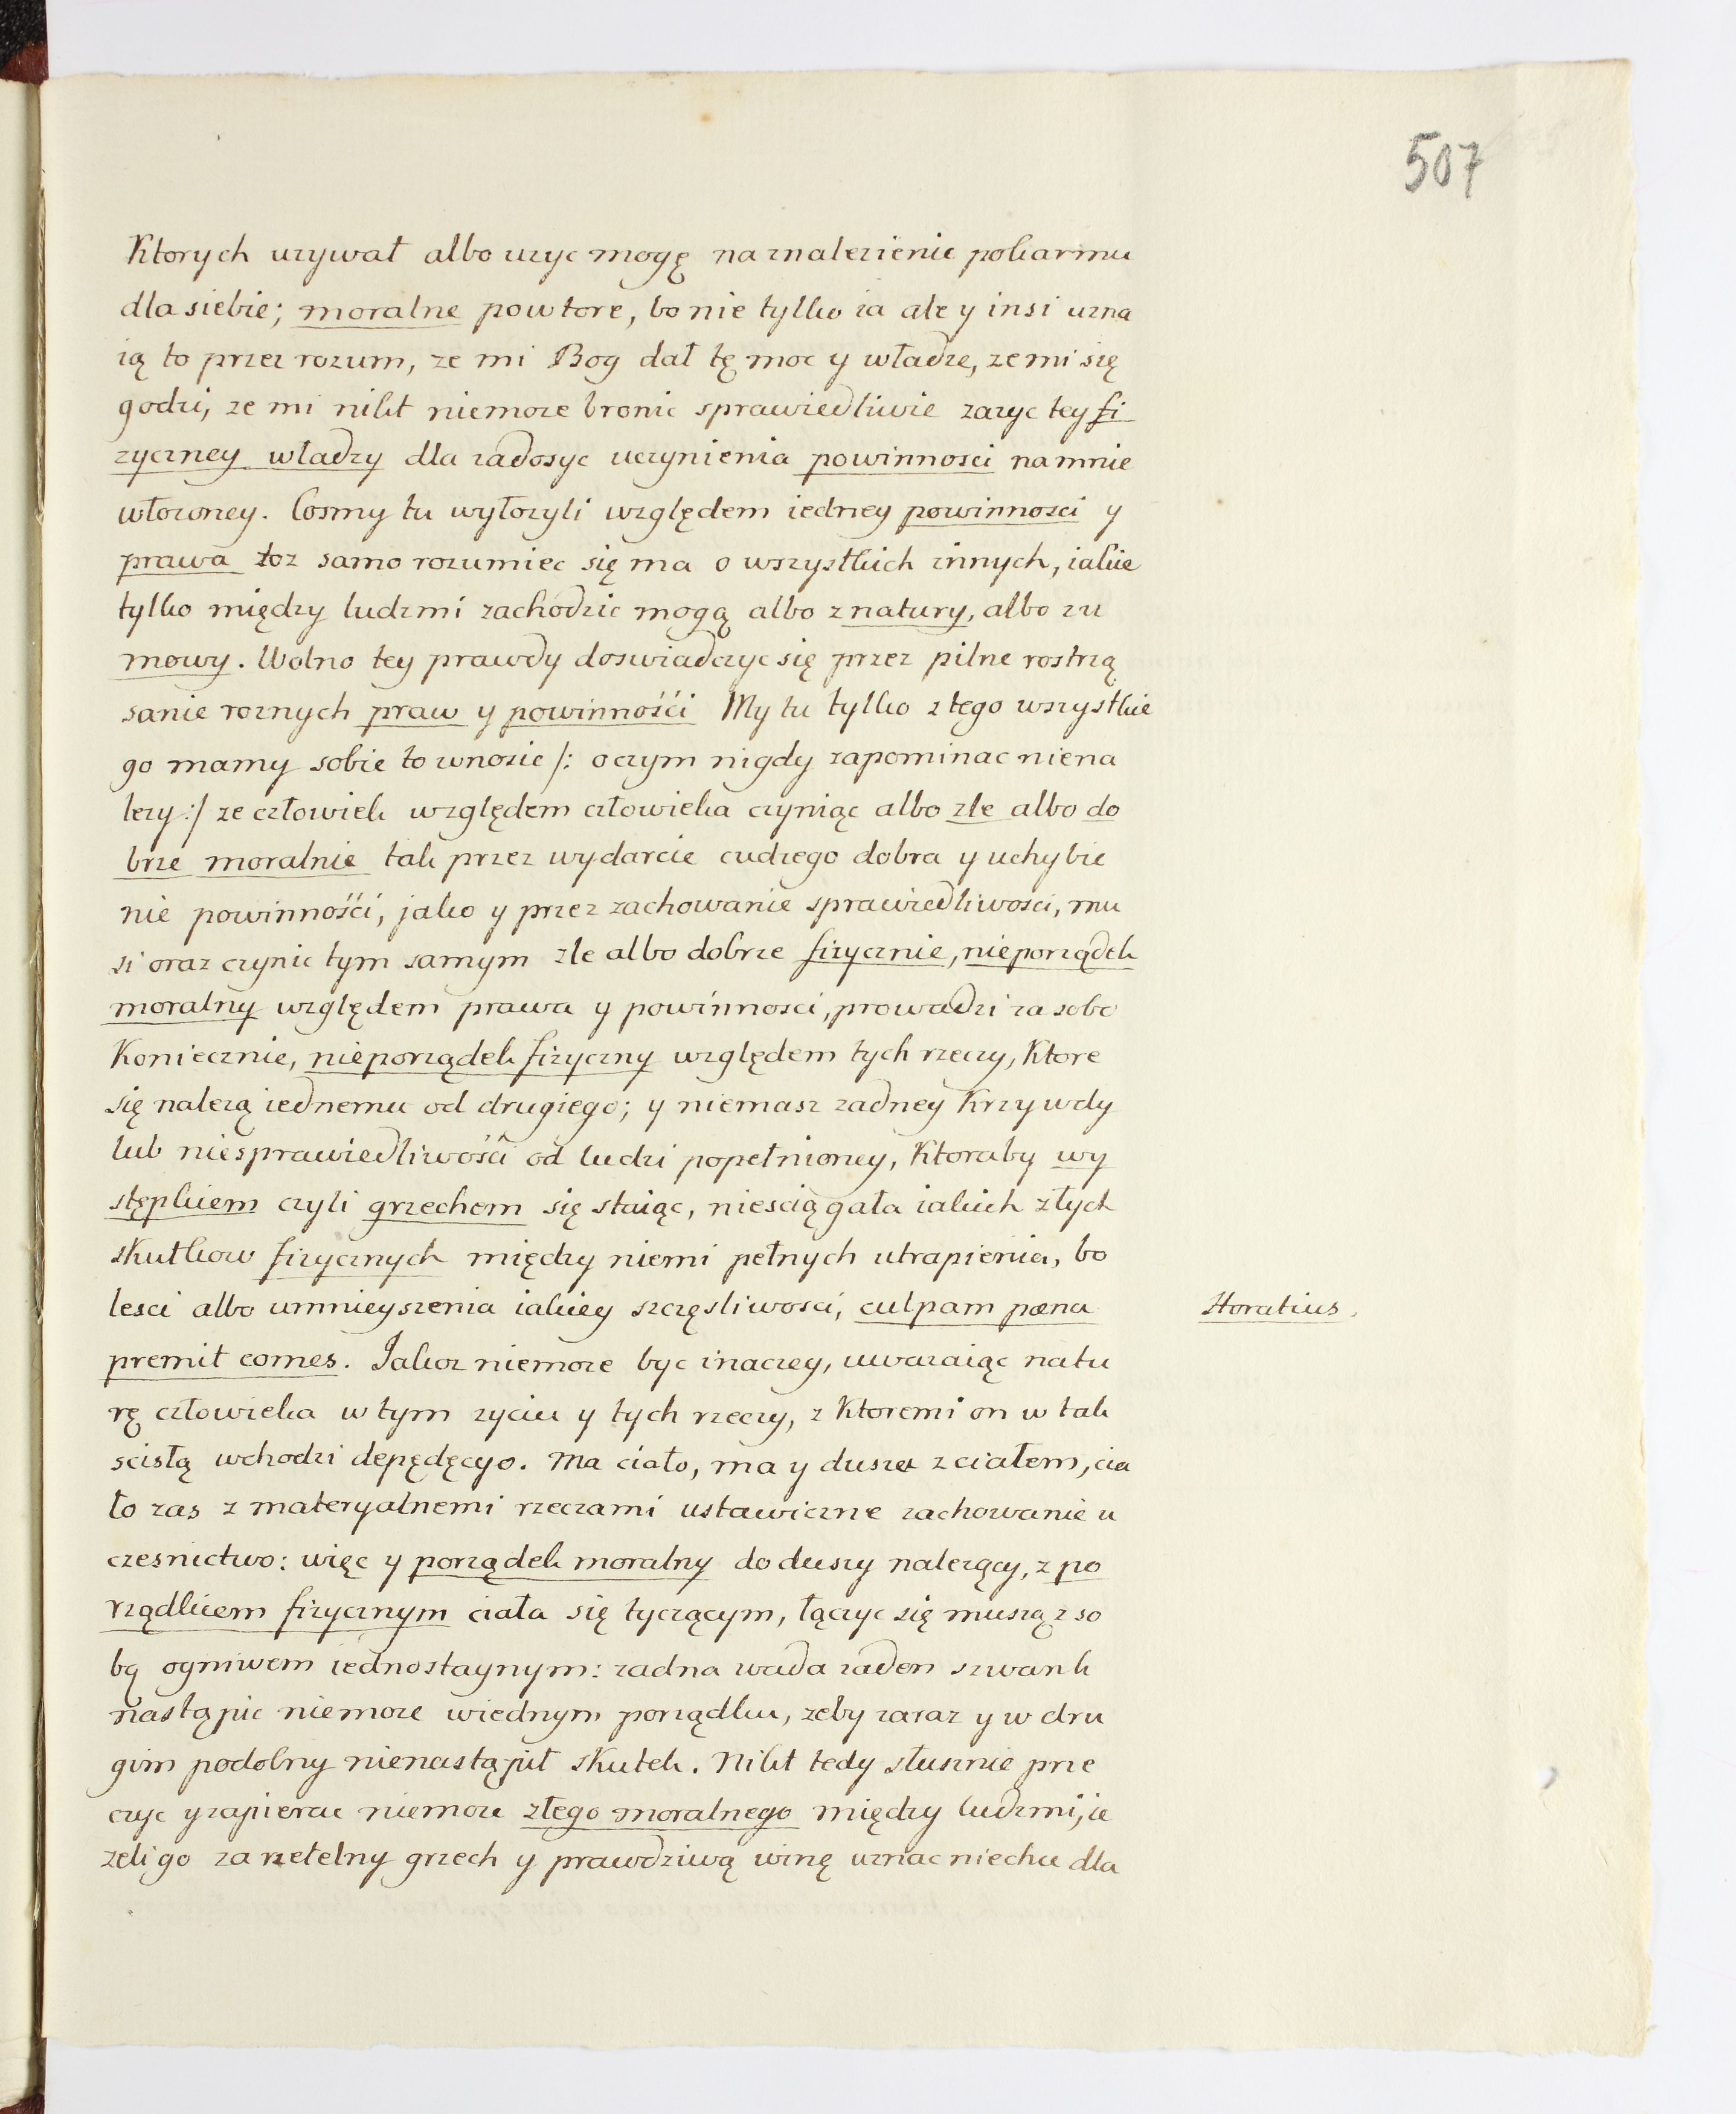 507
Ktorych uzywał albo uzyc mogę na znalezienie pokarmu
dla siebie; moralne powtore, bo nie tylko ia ale y insi uzna
ią to przez rozum, ze mi Bog dał tę moc y władze, ze mi się
godzi, ze mi nikt niemoze bronic sprawiedliwie zazyc tey fi
zyczney władzy dla zadosyc uczynienia powinnosci na mnie
włozoney. Cosmy tu wyłozyli względem iedney powinnosci y
prawa toz samo rozumiec się ma o wszystkich innych, iakie
tylko między ludzmi zachodzic mogą albo z natury, albo z u
mowy. Wolno tey prawdy doswiadczyc się przez pilne rostrzą
sanie roznych praw y powinnośći My tu tylko z tego wszystkie
go mamy sobie to wnosic /: o czym nigdy zapominac niena
lezy :/ ze człowiek względem człowieka czyniąc albo zle albo do
brze moralnie tak przez wydarcie cudzego dobra y uchybie
nie powinnośći, jako y przez zachowanie sprawiedliwosci, mu
si oraz czynic tym samym zle albo dobrze fizycznie, nieporządek
moralny względem prawa y powinnosci, prowadzi za sobo
Koniecznie, nieporządek fizyczny względem tych rzeczy, Ktore
się nalezą iednemu od drugiego; y niemasz zadney Krzywdy
lub niesprawiedliwośći od ludzi popełnioney, Ktoraby wy
stępkiem czyli grzechem się staiąc, niesciągała iakich złych
skutkow fizycznych między niemi pełnych utrapienia, bo
lesci albo umnieyszenia iakiey szczęsliwosci, culpam pœna
Horatius.
premit comes. Jakoz niemoze byc inaczey, uwazaiąc natu
rę człowieka w tym zyciu y tych rzeczy, z Ktoremi on w tak
scisłą wchodzi depędęcyo. Ma ciało, ma y dusze z ciałem, cia
ło zas z materyalnemi rzeczami ustawiczne zachowanie u
czesnictwo: więc y porządek moralny do duszy nalezący, z po
rządkiem fizycznym ciała się tyczącym, łączyc się muszą z so
bą ogniwem iednostaynym: zadna wada zaden szwank
nastąpic niemoze wiednym porządku, zeby zaraz y w dru
gim podobny nienastąpił skutek. Nikt tedy słusznie prze
czyc y zapierac niemoze złego moralnego między ludzmi, ie
zeli go za rzetelny grzech y prawdziwą winę uznac niechu dla